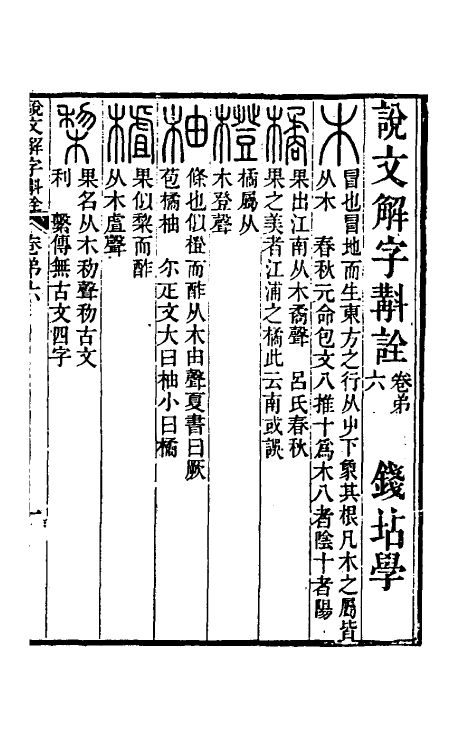 說文解字斠詮 卷弟六 錢坫學
木 冒也冒地而生東方之行从屮下象其根凡木之屬皆
从木 春秋元命包文八推十爲木八者陰十者陽
橘 果出江南从木矞聲 呂氏春秋
果之美者江浦之橘此云南或誤
橙 橘屬从
木登聲
柚 條也似橙而酢从木由聲夏書曰厥
苞橘柚 尔疋文大曰柚小曰橘
樝 果似棃而酢
从木虘聲
棃 果名从木𥝢聲𥝢古文
利 繫傳無古文四字
說文解字斠詮 卷弟六 一